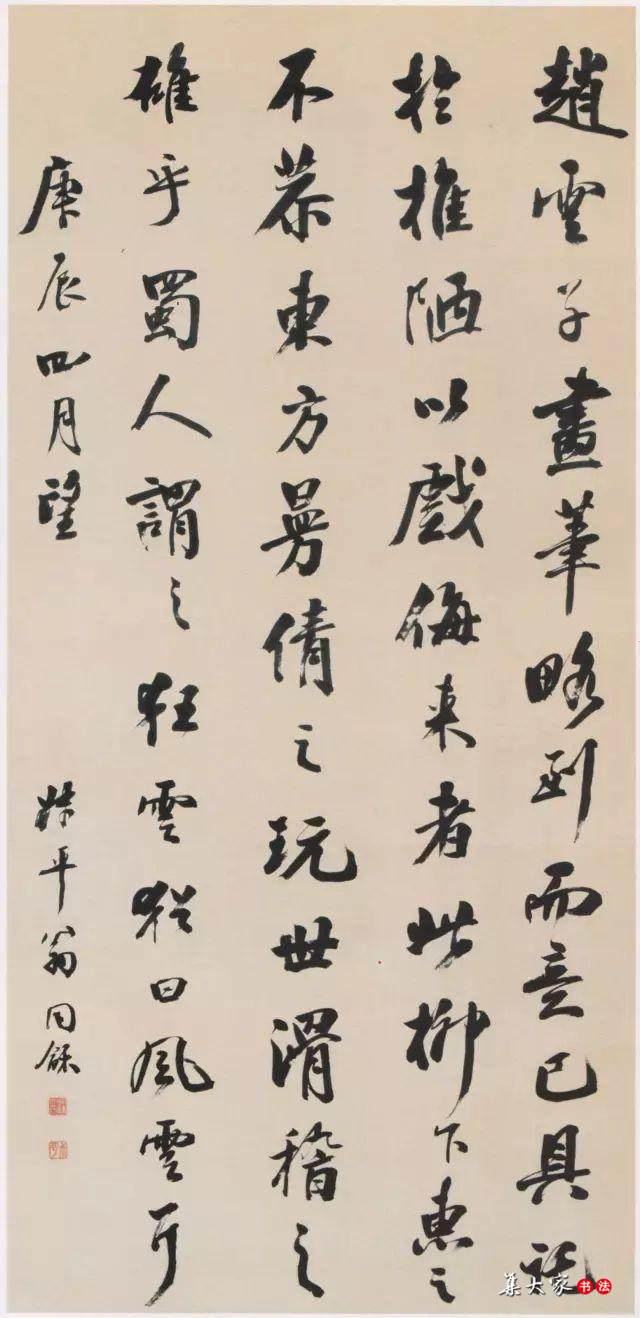 趙雲子畫筆略到而意已具託
於椎陋以戲侮來者此柳下惠之
不恭東方曼倩之玩世滑稽之
雄乎蜀人謂之狂雲猶曰風雲耳
庚辰四月望
叔平翁同龢
集大家书法